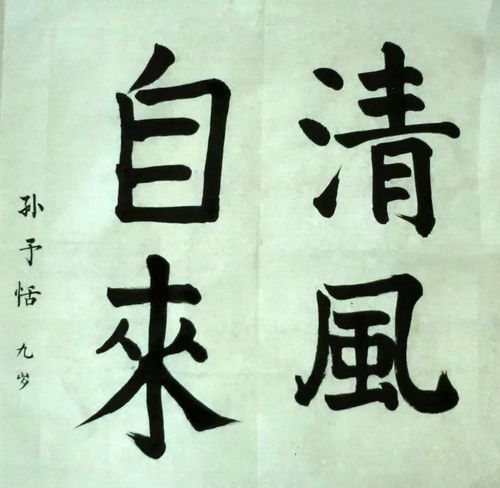 清風
自來
孙予恬 九岁